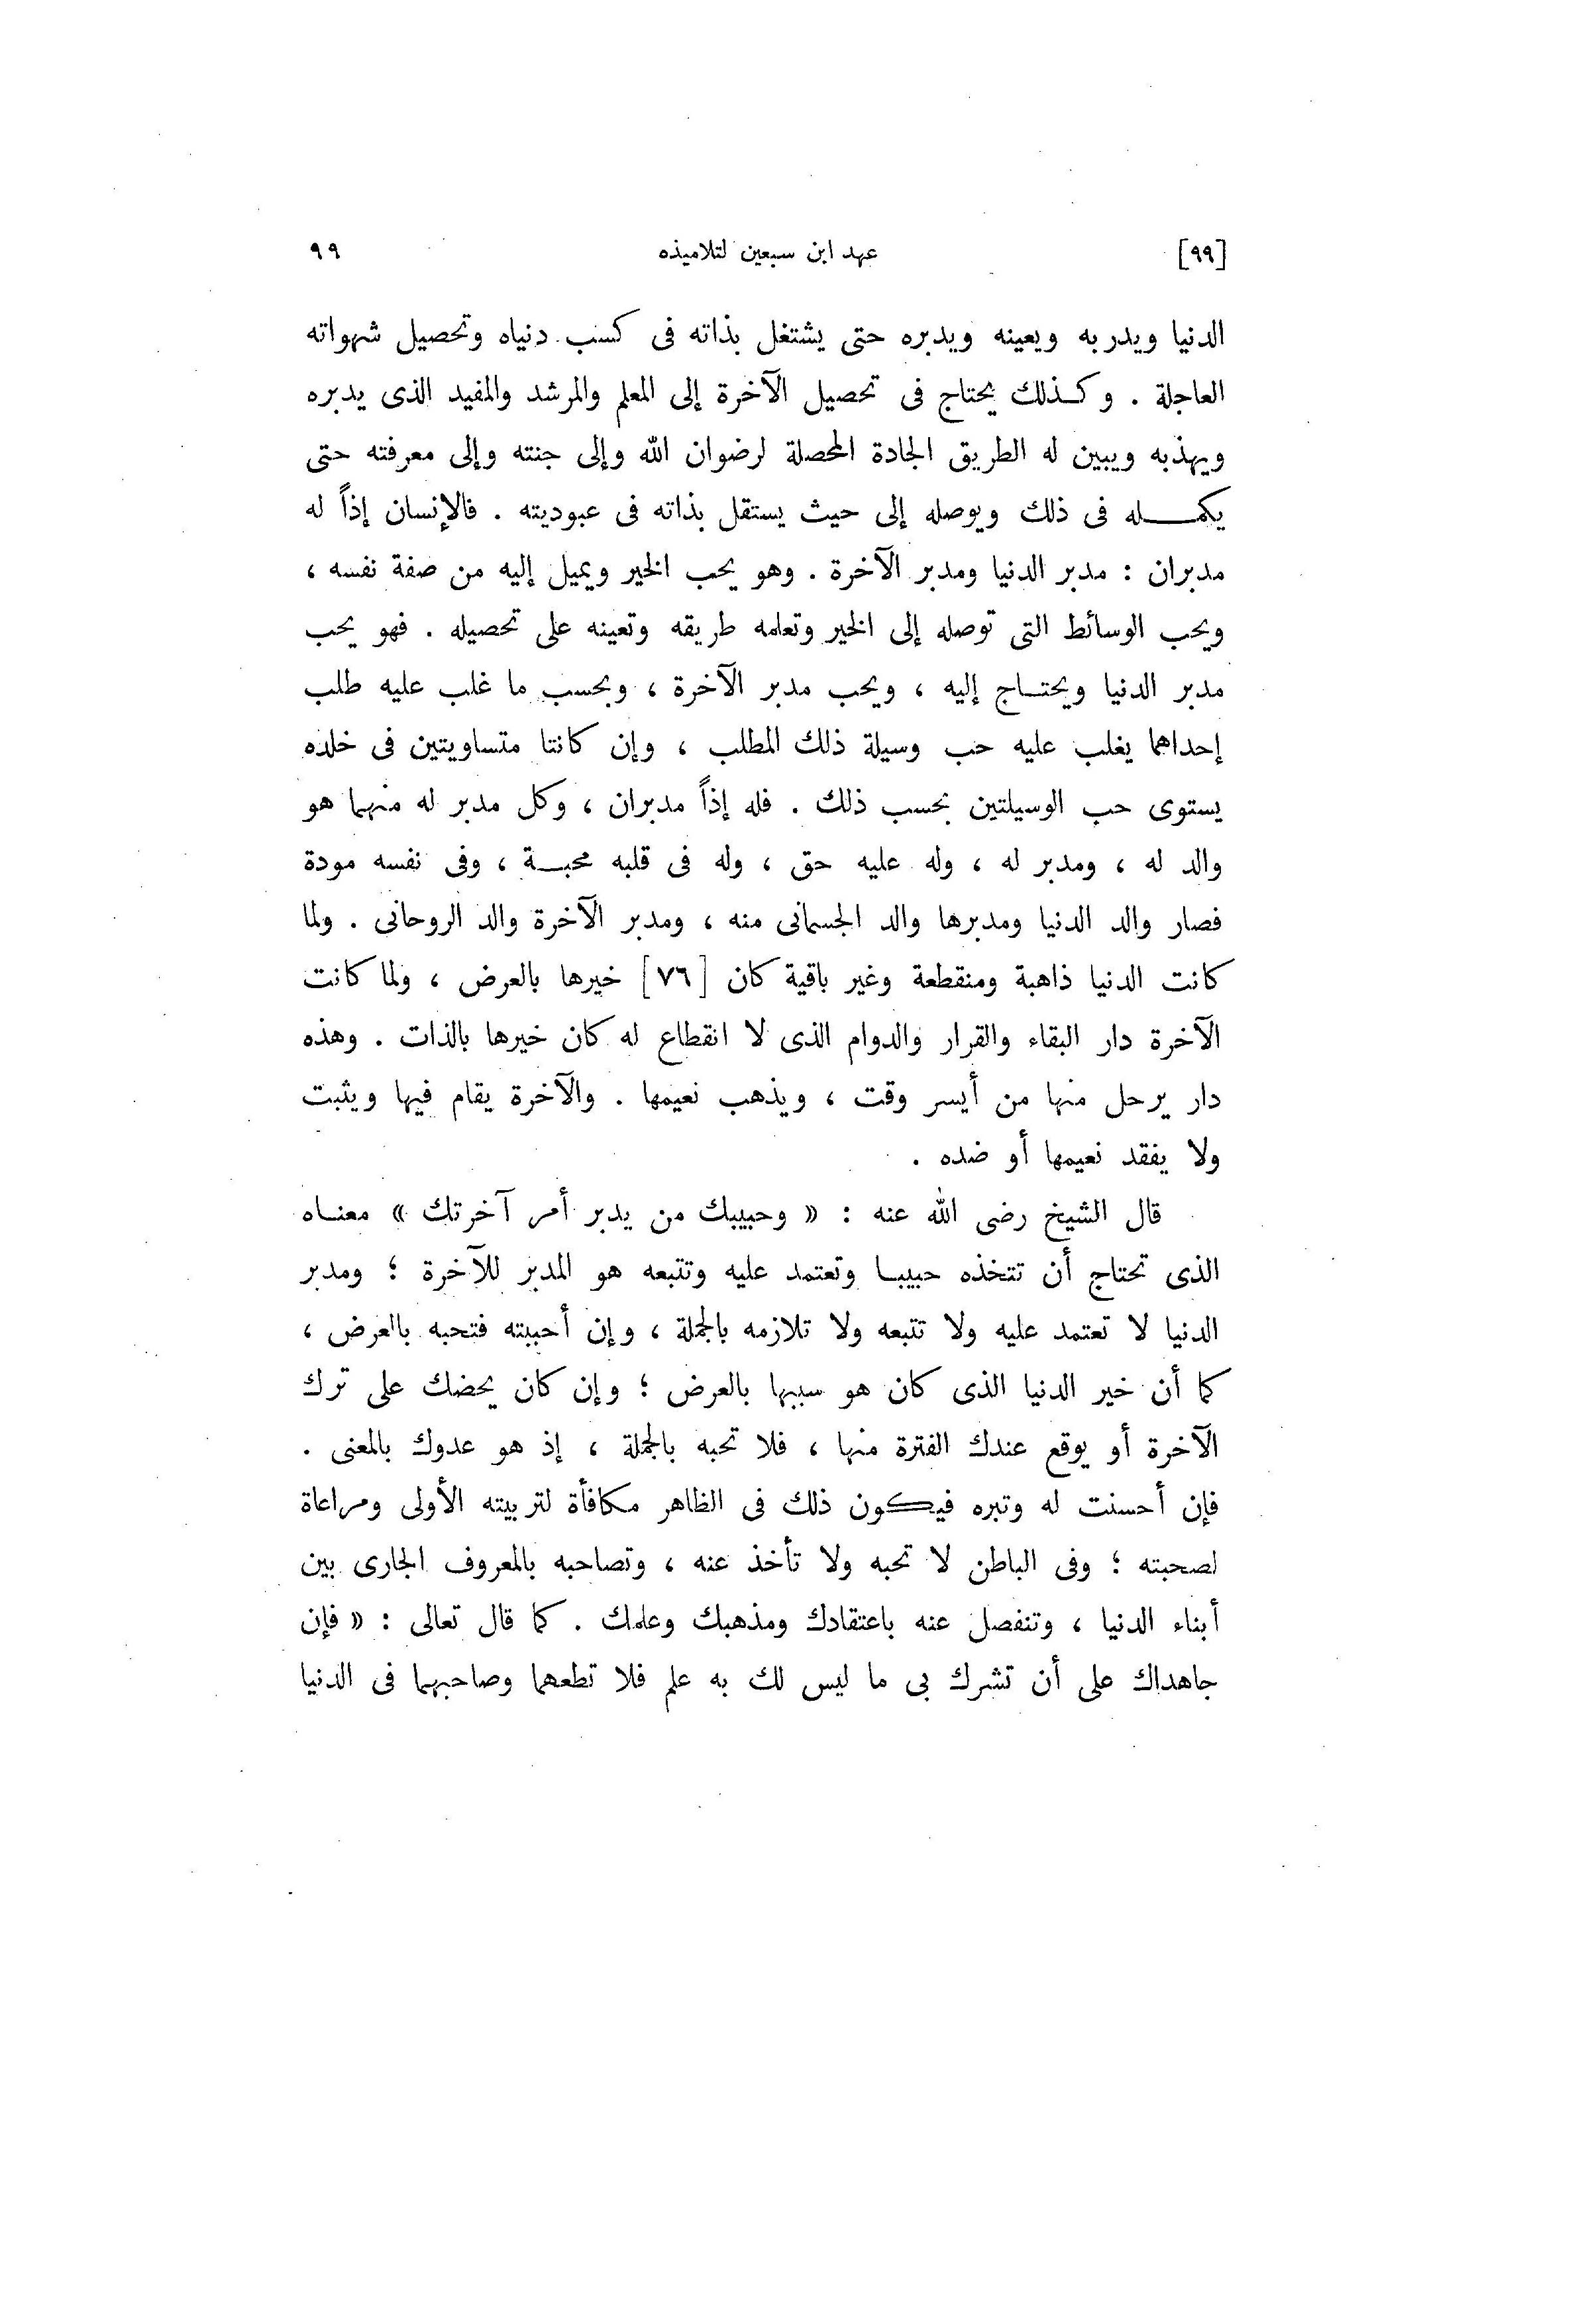 [٩٩] عهد ابن سبعين لتلاميذه ٩٩
الدنيا ويدربه ويعينه ويدبره حتى يشتغل بذاته فى كسب دنياه وتحصيل شهواته
العاجلة . وكذلك يحتاج فى تحصيل الآخرة إلى المعلم والمرشد والمفيد الذى يدبره
ويهذبه ويبين له الطريق الجادة المحصلة لرضوان الله وإلى جنته وإلى معرفته حتى
يكمله فى ذلك ويوصله إلى حيث يستقل بذاته فى عبوديته . فالإنسان إذاً له
مدبران : مدبر الدنيا ومدبر الآخرة . وهو يحب الخير ويميل إليه من صفة نفسه ،
ويحب الوسائط التى توصله إلى الخير وتعلمه طريقه وتعينه على تحصيله . فهو يحب
مدبر الدنيا ويحتاج إليه ، ويحب مدبر الآخرة ، وبحسب ما غلب عليه طلب
إحداهما يغلب عليه حب وسيلة ذلك المطلب ، وإن كانتا متساويتين فى خلده
يستوى حب الوسيلتين بحسب ذلك . فله إذاً مدبران ، وكل مدبر له منهما هو
والد له ، ومدبر له ، وله عليه حق ، وله فى قلبه محبة ، وفى نفسه مودة
فصار والد الدنيا ومدبرها والد الجسمانى منه ، ومدبر الآخرة والد الروحانى . ولما
كانت الدنيا ذاهبة ومنقطعة وغير باقية كان [٧٦] خيرها بالعرض ، ولما كانت
الآخرة دار البقاء والقرار والدوام الذى لا انقطاع له كان خيرها بالذات . وهذه
دار يرحل منها من أيسر وقت ، ويذهب نعيمها . والآخرة يقام فيها ويثبت
ولا يفقد نعيمها أو ضده .
قال الشيخ رضى الله عنه : « وحبيبك من يدبر أمر آخرتك » معناه
الذى تحتاج أن تتخذه حبيبا وتعتمد عليه وتتبعه هو المدبر للآخرة ؛ ومدبر
الدنيا لا تعتمد عليه ولا تتبعه ولا تلازمه بالجملة ، وإن أحببته فتحبه بالعرض ،
كما أن خير الدنيا الذى كان هو سببها بالعرض ؛ وإن كان يحضك على ترك
الآخرة أو يوقع عندك الفترة منها ، فلا تحبه بالجملة ، إذ هو عدوك بالمعنى .
فإن أحسنت له وتبره فيكون ذلك فى الظاهر مكافأة لتربيته الأولى ومراعاة
لصحبته ؛ وفى الباطن لا تحبه ولا تأخذ عنه ، وتصاحبه بالمعروف الجارى بين
أبناء الدنيا ، وتنفصل عنه باعتقادك ومذهبك وعلمك . كما قال تعالى : « فإن
جاهداك على أن تشرك بى ما ليس لك به علم فلا تطعهما وصاحبهما فى الدنيا